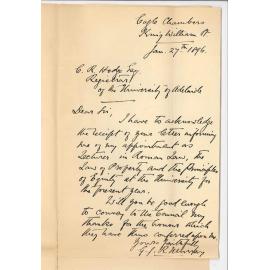 Eagle Chambers
King William St
Jan. 27th 1896.
C. R. Hodge Esq
Registrar
of the University of Adelaide
Dear Sir,
I have to acknowledge
the receipt of your letter informing
me of my appointment as
Lecturer in Roman Law, the
Law of Property and the Principles
of Equity at the University for
the present year.
Will you be good enough
to convey to the Council my
thanks for the honour which
they have thus conferred upon me
Yours faithfully